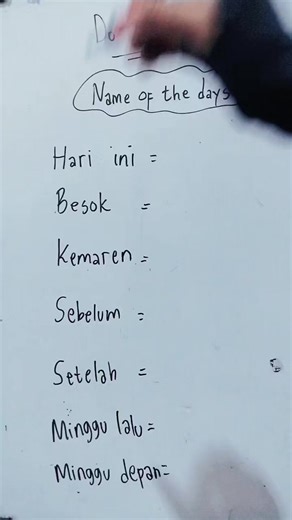 Name of the days
Hari ini =
Besok =
Kemaren =
Sebelum =
Setelah =
Minggu lalu =
Minggu depan =